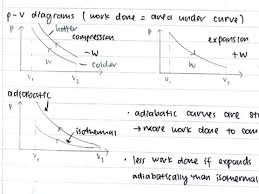 p-V diagrams (work done = area under curve)
P
hotter
compression
-W
colder
V₁
V₂
P
expansion
+W
W
V₁
V₂
adiabatic
P
isothermal
V₁
V₂
• adiabatic curves are st
→ more work done to com
• less work done if expands
adiabatically than isothermal